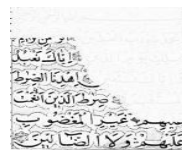 إياك نعبد
اهدنا الصرط
صرط الذين انعمت
عليهم غير المغضوب
عليهم ولا الضالين